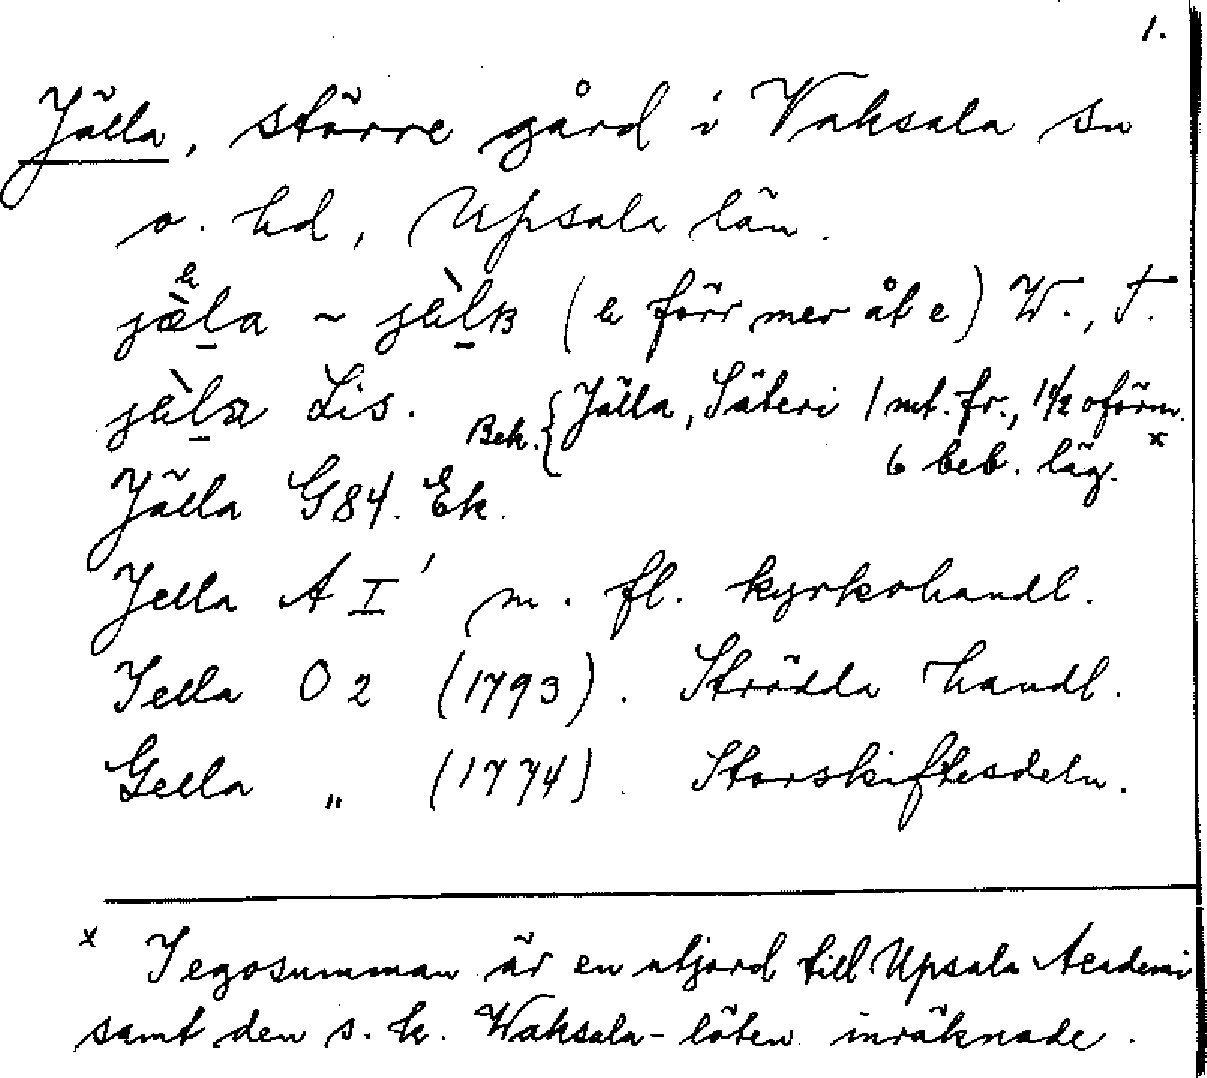 1.
Jälla, större gård i Vaksala sn
o. hd, Upsala län.
jæ̀la ~ jὲlɐ (ɛ förr mer åt e) W., T.
jὲla Lis.
Bek. { Jälla, Säteri 1 mt. fr., 1 1/2 oförm. x
6 beb. läg.
Jälla G84. Ek.
Jella A I' m. fl. kyrkohandl.
Jella O 2 (1793). Strödda handl.
Gella " (1774). Storskiftesdeln.
x I egosumman är en utjord till Upsala Academi
samt den s. k. Waksala-löten inräknade.